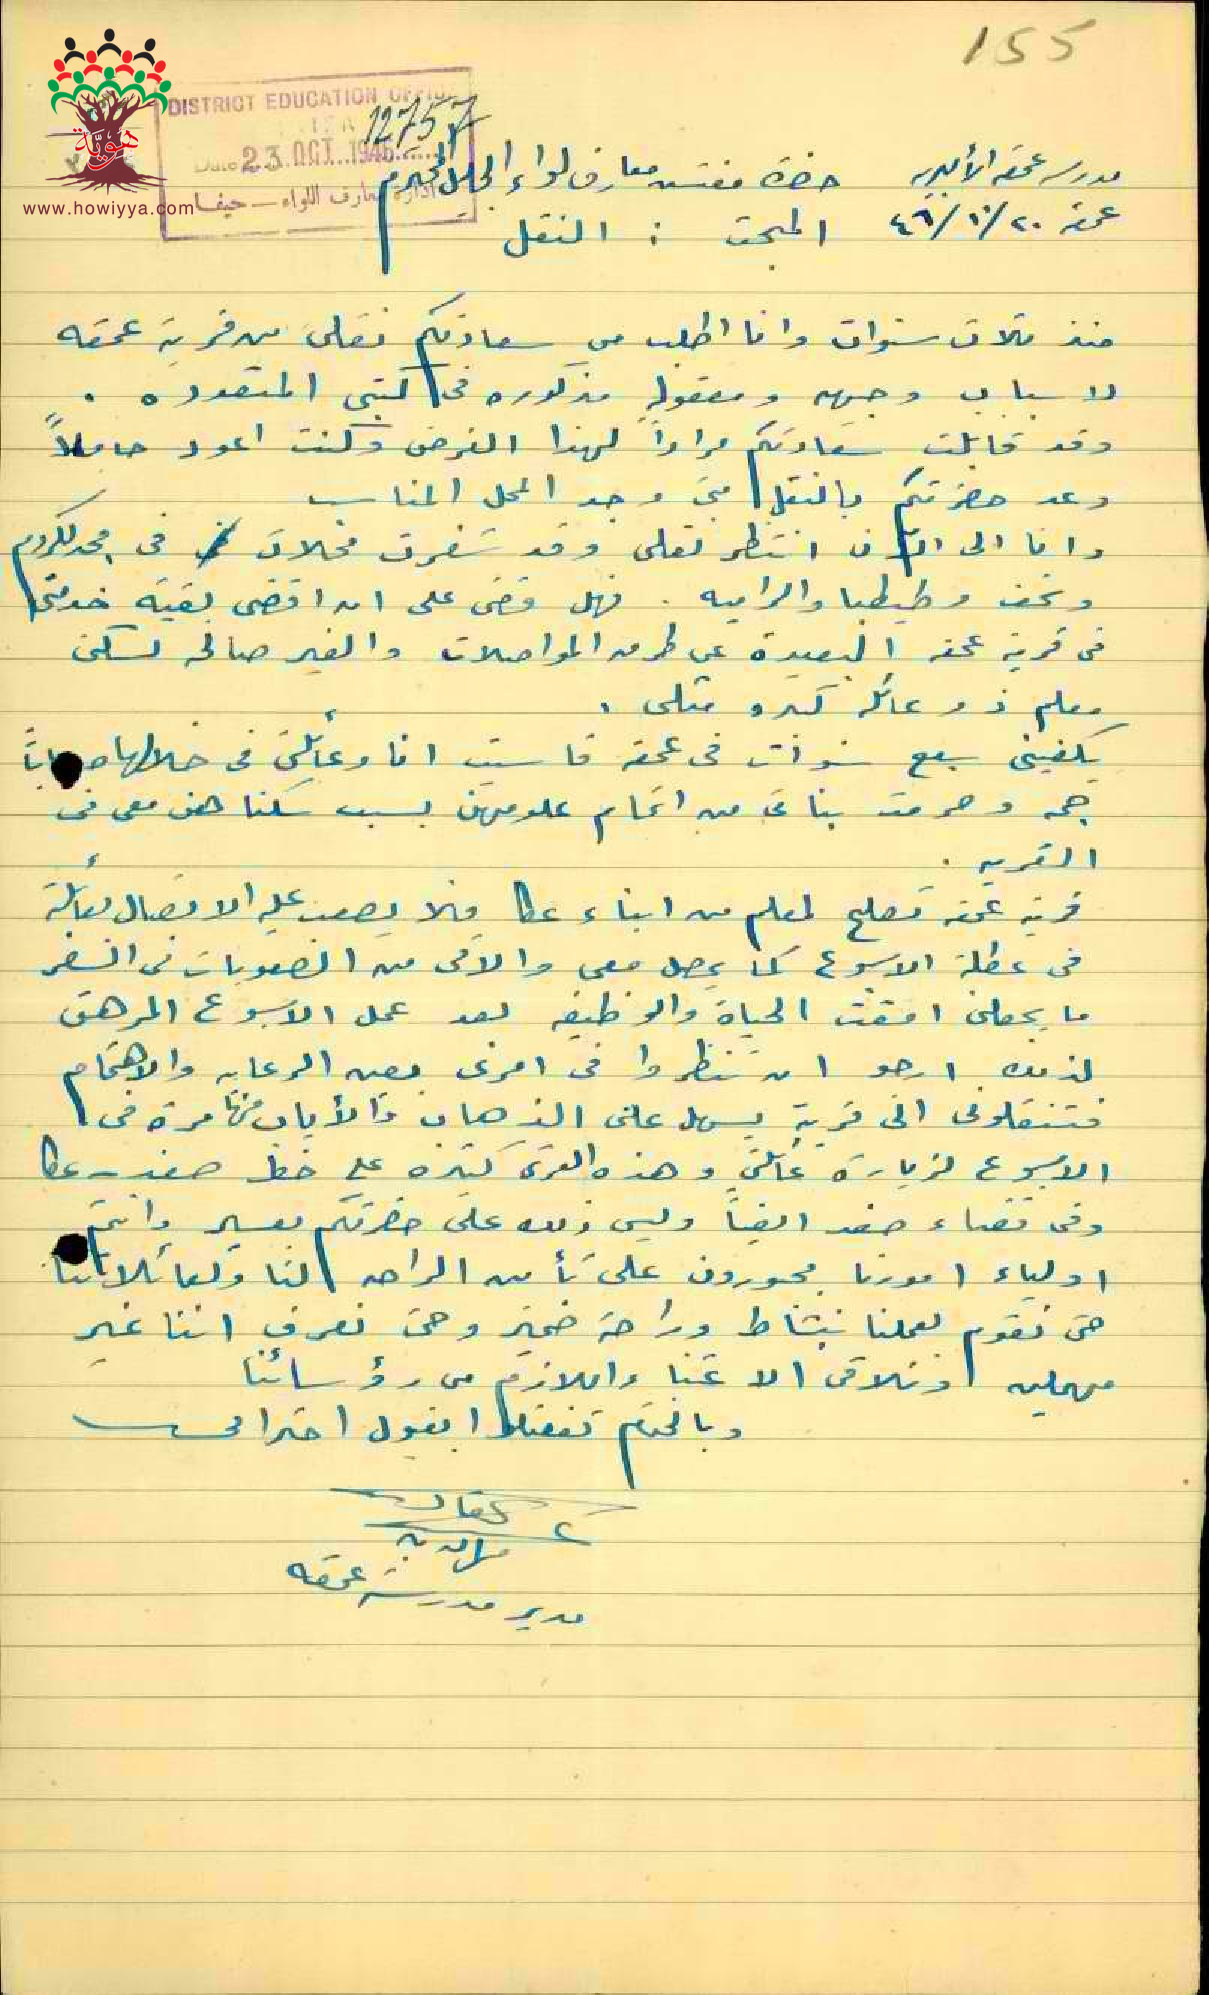 155
DISTRICT EDUCATION OFFICE
12757
Date 23 OCT 1946
ادارة معارف اللواء — حيفا
هوية
www.howiyya.com
مدرسة عمقه الأميرية
عمقه ٢٠/١٠/٤٦
حضرة مفتش معارف لواء الجليل المحترم
المبحث : النقل
منذ ثلاث سنوات وانا اطلب من سعادتكم نقلي من قرية عمقه
لاسباب وجيهه ومعقوله مذكوره في كتبي المتعدده .
وقد قابلت سعادتكم مراراً لهذا الغرض وكنت اعود حاملاً
وعد حضرتكم بالنقل متى وجد المحل المناسب
وانا الى الآن انتظر نقلي وقد شغرت محلات في مجد لكروم
ونحف وطيطبا والراميه . فهل قضي على ان اقضي بقية خدمتي
في قرية عمقه البعيدة عن طرق المواصلات والغير صالحه لسكن
معلم ذو عائله كبيره مثلي .
يكفيني سبع سنوات في عمقه قاسيت انا وعائلتي في خلالها
جمه وحرمت بناتي من اتمام علومهن بسبب سكناهن معي في
القريه .
قرية عمقه تصلح لمعلم من ابناء عكا فلا يصعب عليه الاتصال بعائلته
في عطلة الاسبوع كما يحصل معي والاقي من الصعوبات في السفر
ما يجعلني امقت الحياة والوظيفه بعد عمل الاسبوع المرهق
لذلك ارجو ان تنظروا في امري بعين الرعايه والاهتمام
فتنقلوني الى قرية يسهل علي الذهاب والأياب منها مرة في
الاسبوع لزيارة عائلتي وهذه القرى كثيره على خط صفد - عكا
وفي قضاء صفد ايضاً وليس ذلك على حضرتكم بعسير وانتم
اولياء امورنا مجبورون على تأمين الراحه لنا ولعائلاتنا
حتى نقوم بعملنا بنشاط وراحة ضمير وحتى نعرف اننا غير
مهملين ونلاقي الاعتنا واللازم من رؤسائنا
وبالختام تفضلوا بقبول احترامي
مدير مدرسة عمقه